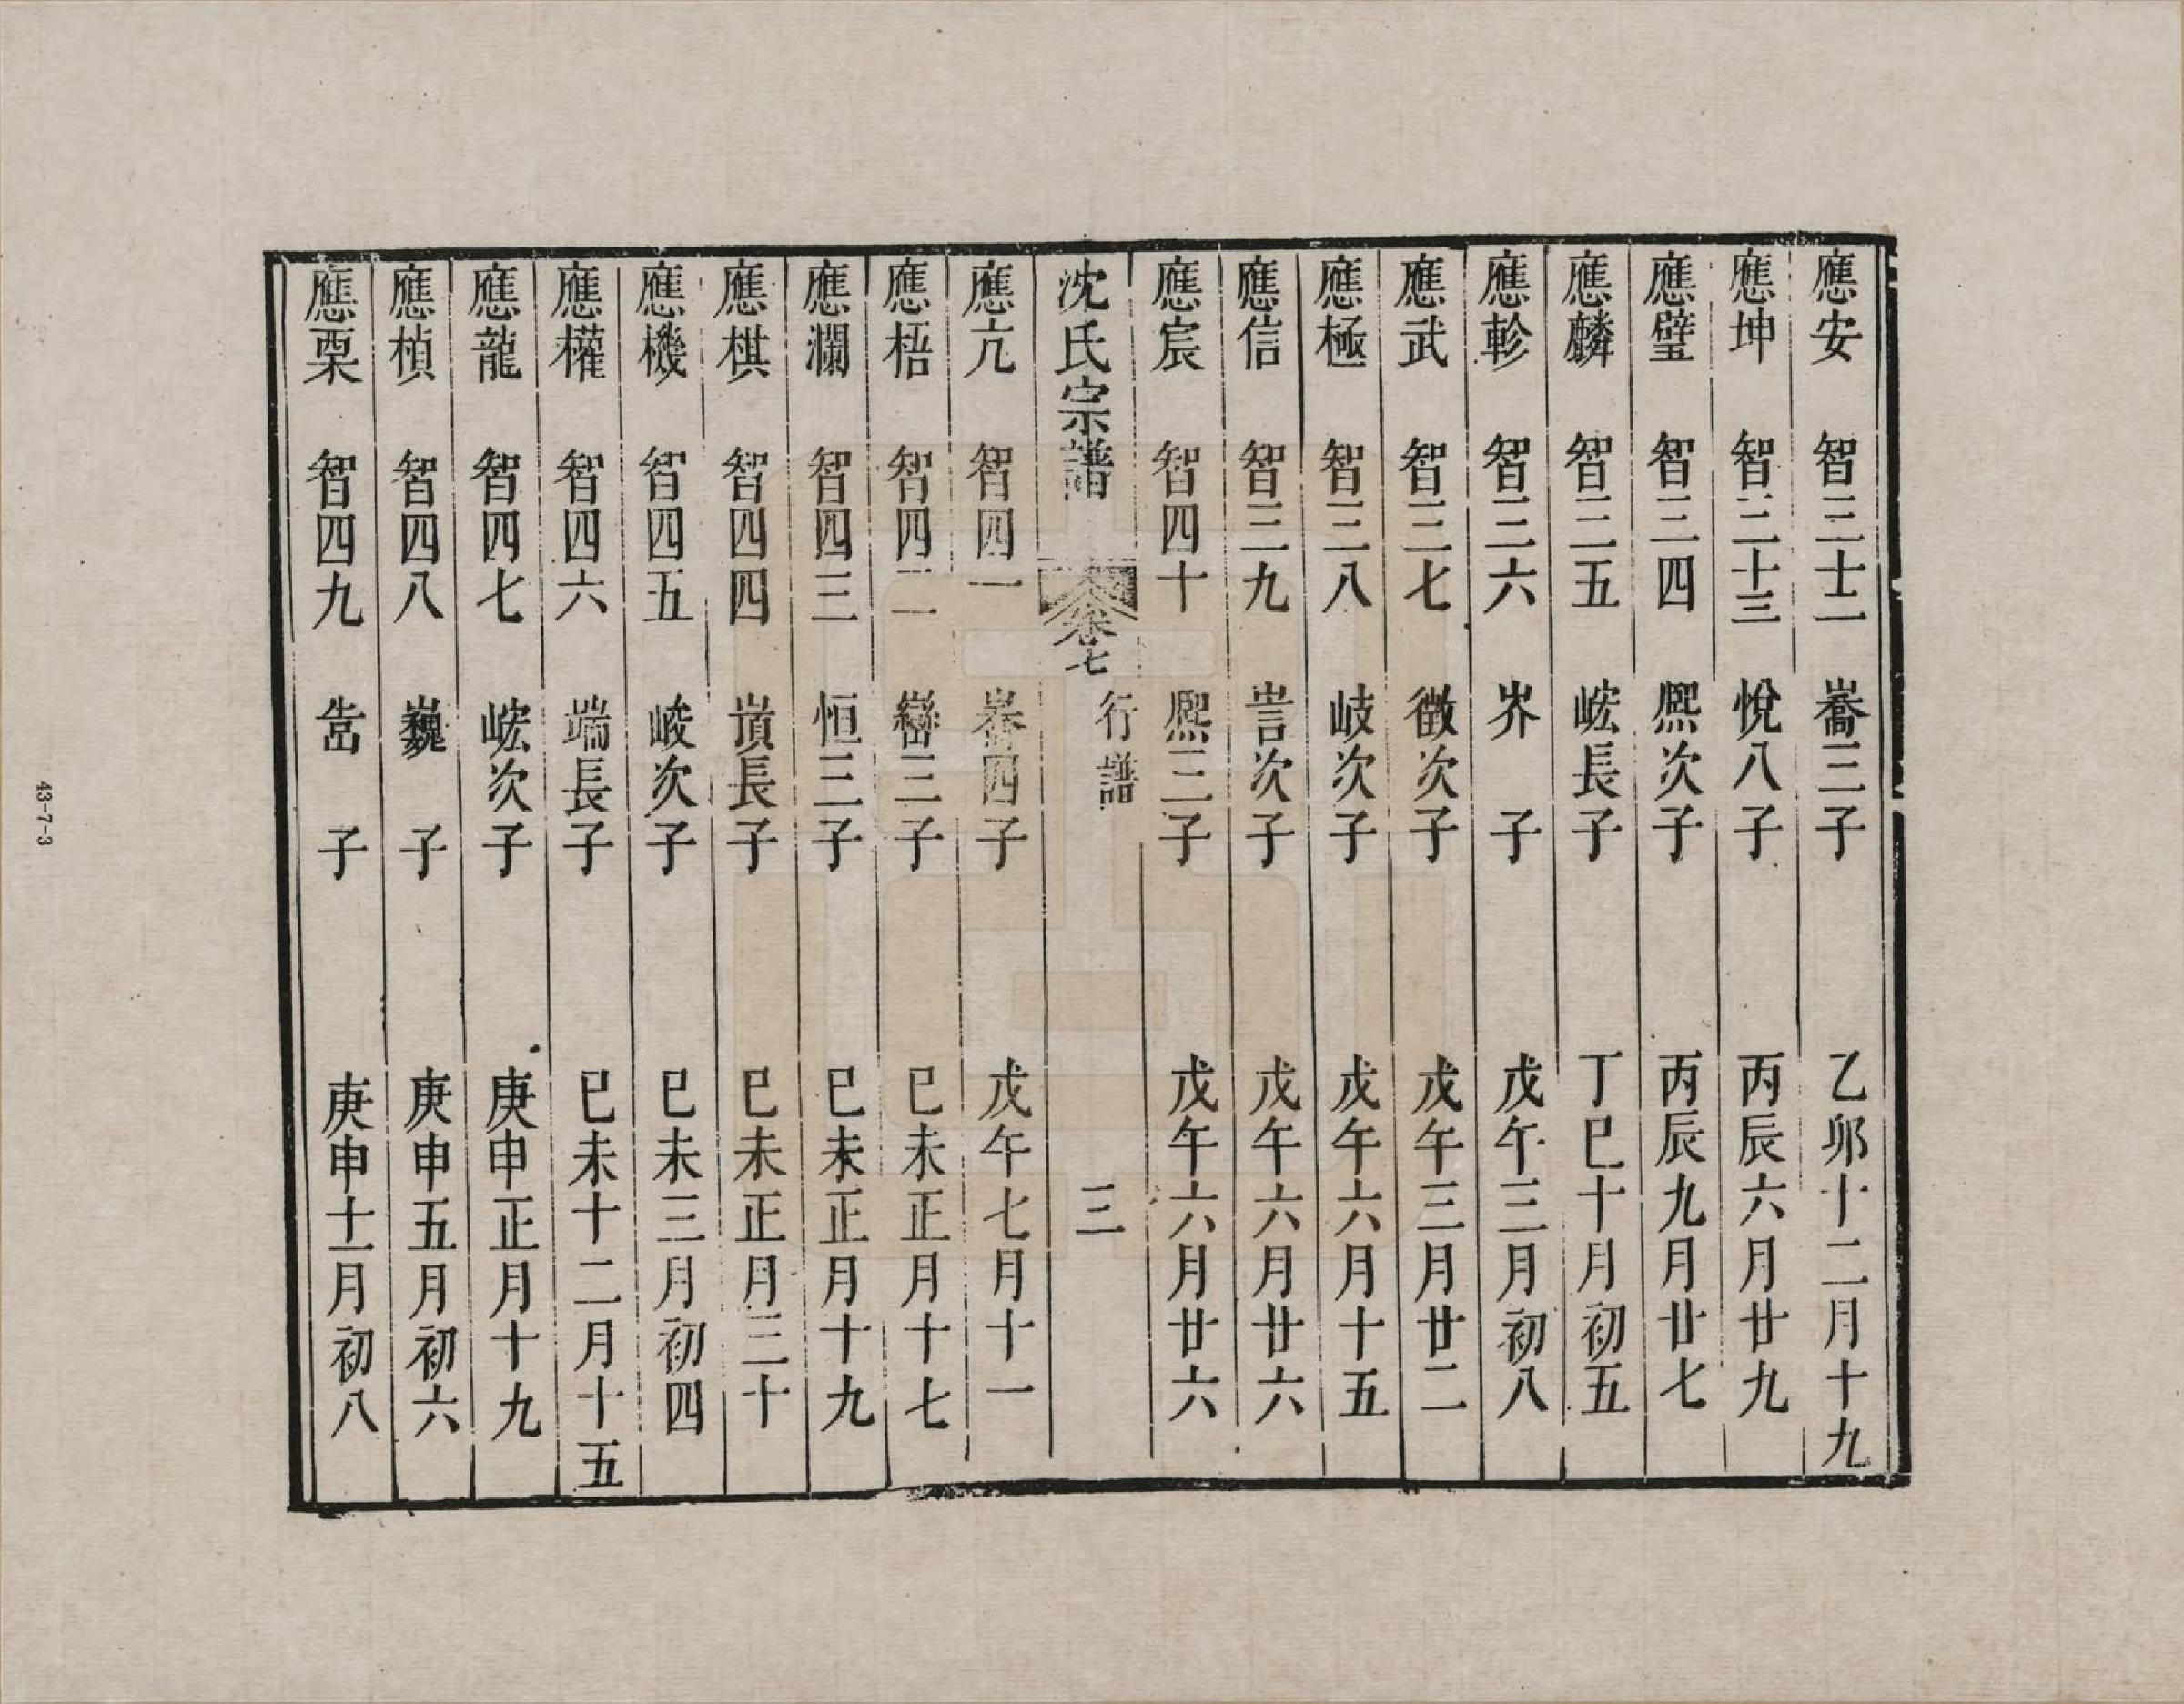 應安 智三十二 嵩三子 乙卯十二月十九
應坤 智三十三 悅八子 丙辰六月廿九
應璧 智三四 熙次子 丙辰九月廿七
應麟 智三五 峵長子 丁巳十月初五
應軫 智三六 岕 子 戊午三月初八
應武 智三七 徵次子 戊午三月廿二
應極 智三八 岐次子 戊午六月十五
應信 智三九 訔次子 戊午六月廿六
應宸 智四十 熙三子 戊午六月廿六
沈氏宗譜 卷七 行譜 三
應亢 智四一 四子 戊午七月十一
應梧 智四二 巒三子 巳未正月十七
應瀾 智四三 恒三子 巳未正月十九
應棋 智四四 長子 巳未正月三十
應機 智四五 峻次子 巳未三月初四
應權 智四六 端長子 巳未十二月十五
應龍 智四七 峵次子 庚申正月十九
應楨 智四八 巍 子 庚申五月初六
應栗 智四九 子 庚申十一月初八
43-7-3